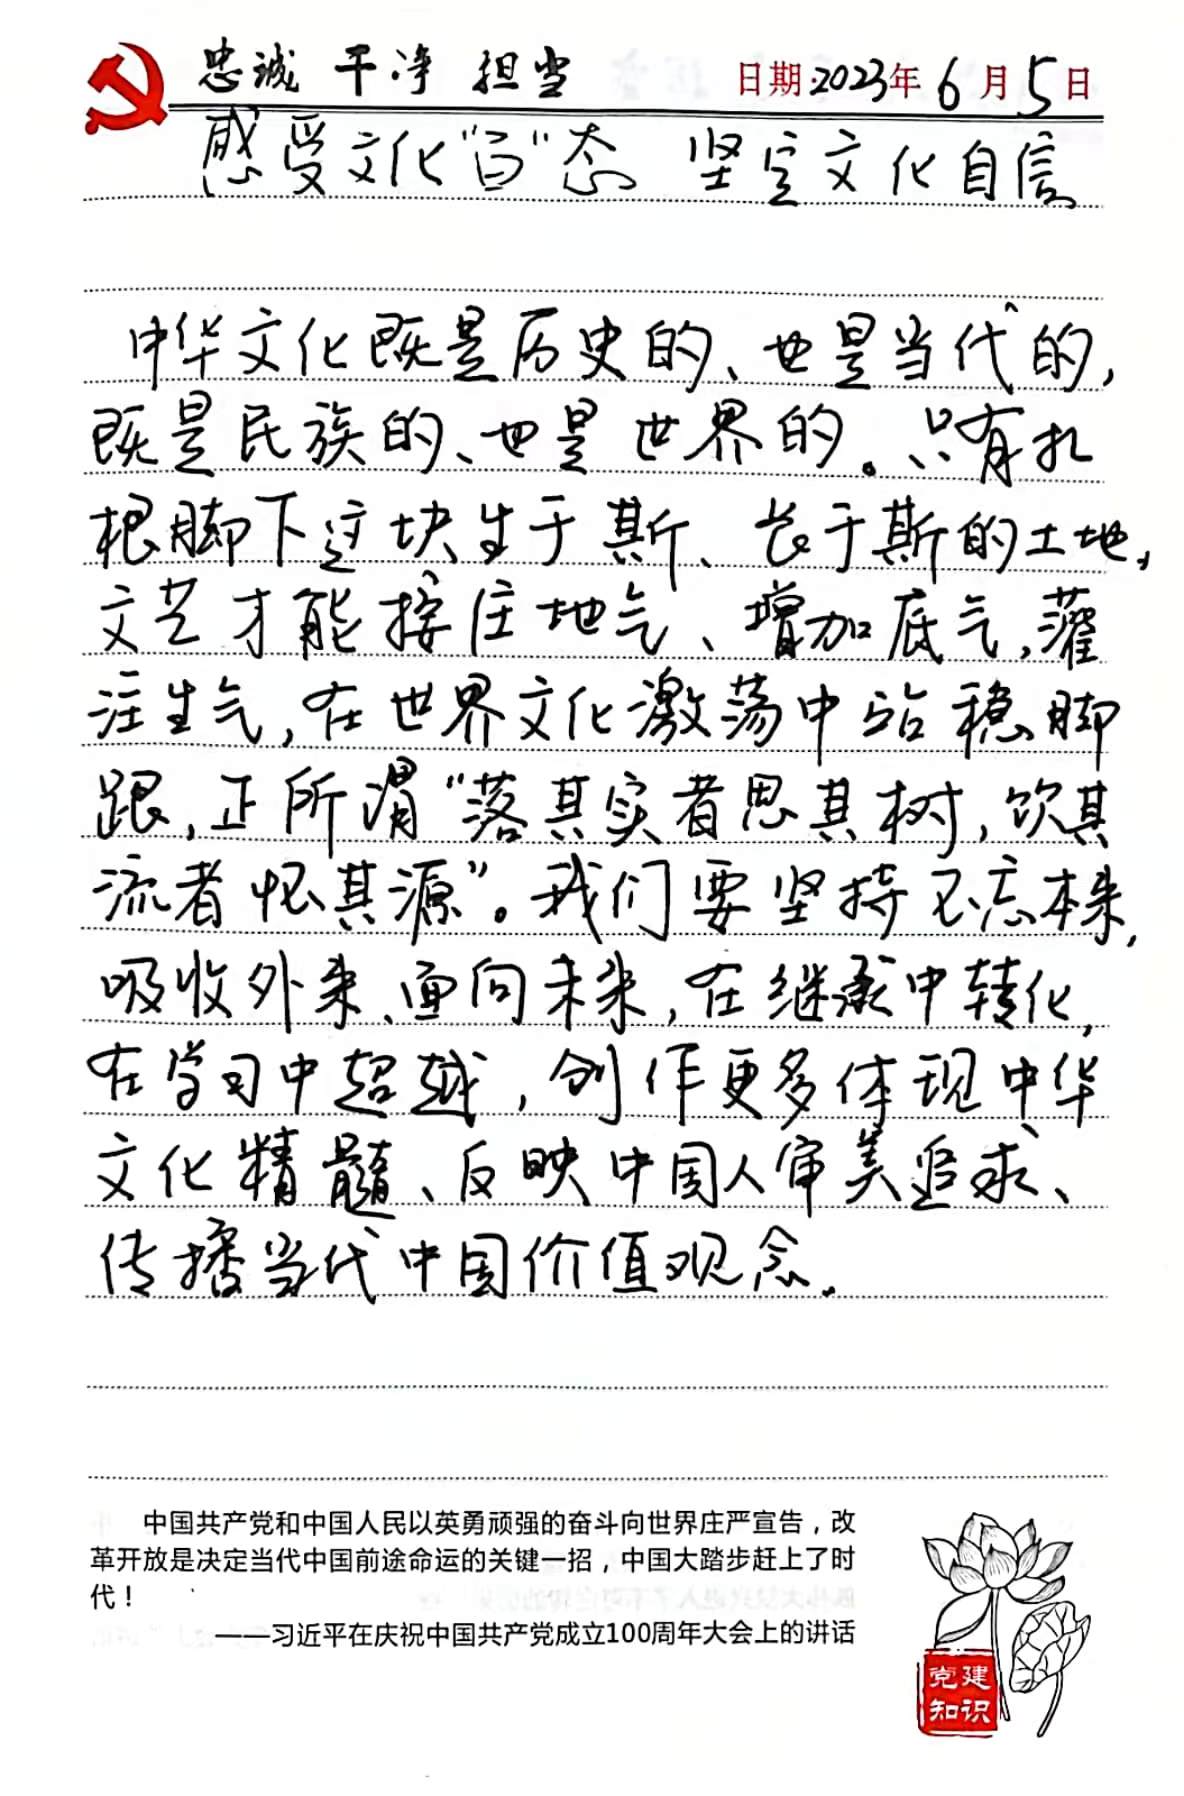 忠诚 干净 担当
日期:2023年6月5日
感受文化"百"态 坚定文化自信
中华文化既是历史的、也是当代的,
既是民族的、也是世界的。只有扎
根脚下这块生于斯、长于斯的土地,
文艺才能接住地气、增加底气,灌
注生气,在世界文化激荡中站稳脚
跟,正所谓"落其实者思其树,饮其
流者怀其源"。我们要坚持不忘本来,
吸收外来、面向未来,在继承中转化,
在学习中超越,创作更多体现中华
文化精髓、反映中国人审美追求、
传播当代中国价值观念.
中国共产党和中国人民以英勇顽强的奋斗向世界庄严宣告，改
革开放是决定当代中国前途命运的关键一招，中国大踏步赶上了时
代！
——习近平在庆祝中国共产党成立100周年大会上的讲话
党建
知识